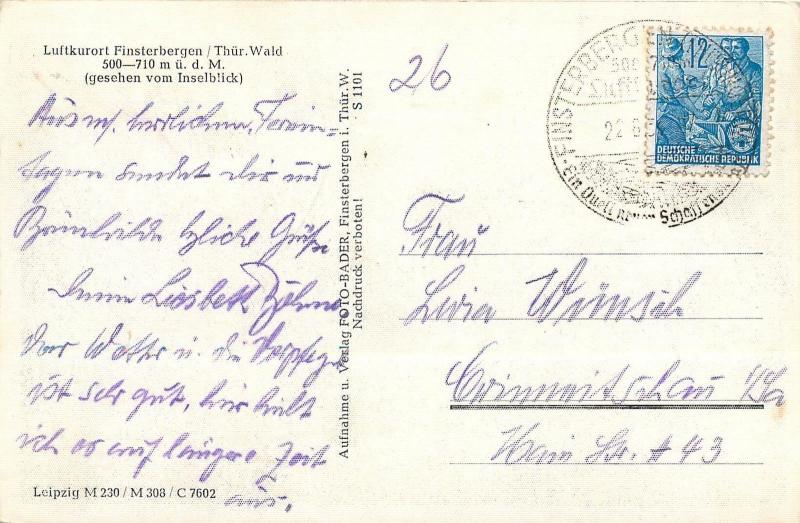 Luftkurort Finsterbergen / Thür. Wald
500—710 m ü. d. M.
(gesehen vom Inselblick)
herrlichen Ferien-
tagen sendet dir und
Brünhilde hzliche Grüße
Deine Liesbeth
Das Wetter u. die Verpfleg.
ist sehr gut, hier hält
ich es auf längere Zeit
aus.
Leipzig M 230 / M 308 / C 7602
Aufnahme u. Verlag FOTO-BADER, Finsterbergen i. Thür. W.
Nachdruck verboten! S 1101
26
FINSTERBERGEN
22.6
Ein Quell neuer Schaffens
12
DEUTSCHE
DEMOKRATISCHE REPUBLIK
Frau
Wünsch
Crimmitschau i/Sa
Hain Str. # 43